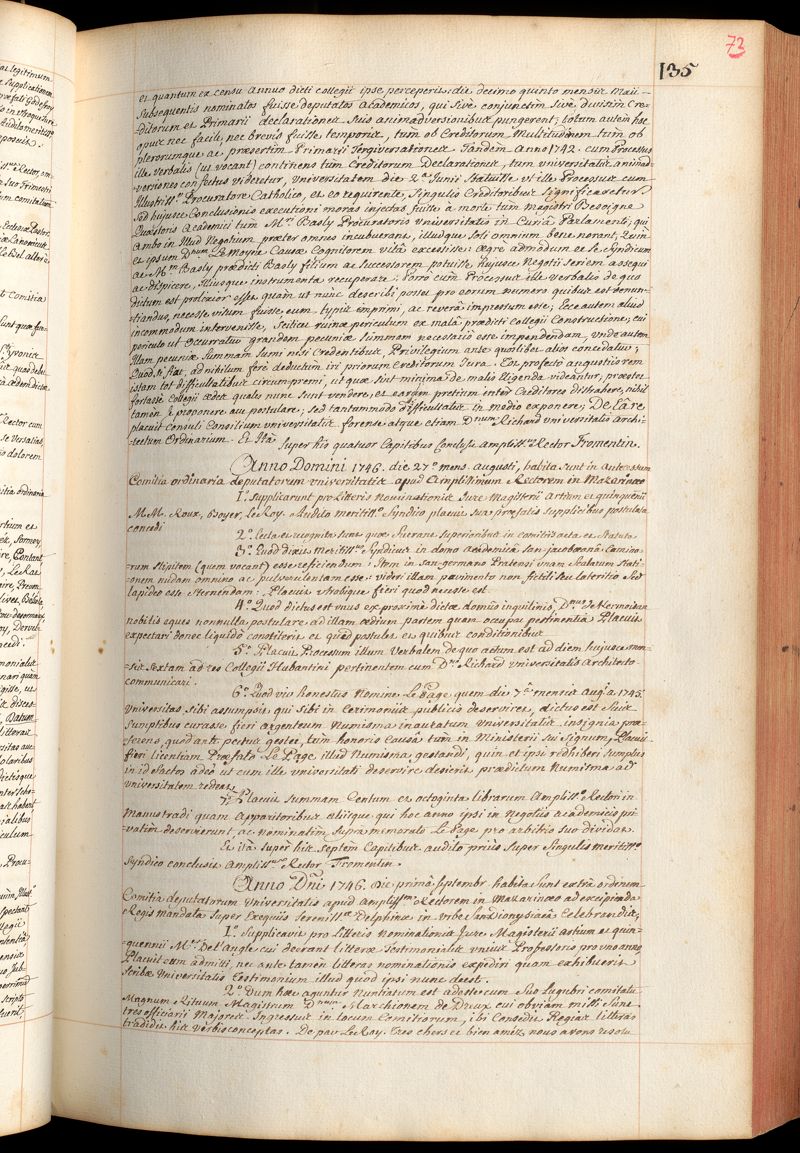 73
135
et quantum ex censu annuo dicti collegii ipse perceperit: die decimo quinto mensis Maii
Subsequentis nominatos fuisse deputatos academicos, qui sive conjunctim sive divisim Cre-
ditorum et Primarii declarationes suis animadversionibus pungerent; totum autem hoc
opus nec facile, nec brevis fuisse temporis, tum ob Creditorum Multitudinem tum ob
plerorumque ac præsertim Primarii Tergiversationes Tandem anno 1742. cum Processus
ille verbalis (ut vocant) continens tum Creditorum Declarationes, tum universitatis animad-
versiones confectus videretur, universitatem die 2a. Junii Statuisse ut ille Processus cum
Illustriss.o Procuratore Catholico, et eo requirente, Singulis Creditoribus Significaretur.
Sed hujusce Conclusionis executioni moras injectas fuisse a morte tum magistri Besoigne
Quæstoris academici tum Mri. Basly Procuratoris universitatis in Curia Parlamenti; qui
ambo in illud Negotium præter omnes incubuerant, illudque soli omnium bene norant;
et ipsum Dnum Le Moyne Causæ Cognitorem vitâ excessisse: ægre admodum et se Syndicum
ac Mm. Basly prædicti Basly filium ac Successorem potuisse hujusce Negotii seriem assequi
ac dispicere, illiusque instrumenta recuperare: Porro cum Processus ille verbalis de quo
dictum est prolixior esset quam ut nunc describi posset pro eorum numero quibus est denun-
tiandus, necesse visum fuisse, eum typis imprimi, ac reverâ impressum esse; Ecce autem aliud
incommodum intervenisse, Scilicet ruinæ periculum ex malâ prædicti collegii Constructione; cui
periculo ut occurratur grandem pecuniæ Summam necessario esse impendendam, unde autem
illam pecuniæ Summam Sumi nisi Credentibus Privilegium ante quoslibet alios concedatur;
Quod si fiat, ad nihilum fere deductum iri priorum Creditorum Jura. Tot profecto angustiis rem
istam tot difficultatibus circumpremi, ut quæ sint minima de malis eligenda videantur, præstet
fortasse Collegii ædes quales nunc Sunt vendere, et earum pretium inter Creditores distrahere; nihil
tamen se proponere aut postulare; sed tantummodo difficultates in medio exponere; De la Re
placuit consuli Consilium universitatis forense atque etiam Dnum Richard universitatis archi-
tectum Ordinarium. Et Ita
Super his quatuor Capitibus Conclusit ampliss.us Rector Fromentin.
Anno Domini 1746. die 27a mens. augusti, habita Sunt in Antecessum
Comitia ordinaria deputatorum universitatis apud Amplissimum Rectorem in Mazarinæo
1o. Supplicarunt pro Litteris Nominationis Jure Magisterii artium et quinquenii
M. M. Roux, Boyer, Le Roy. Audito meritiss.o Syndico placuit sua præfatis supplicibus postulata
concedi
2o. Lecta et recognita Sunt quæ fuerant Superioribus in comitiis acta et Statuta
3o. Quod dixit meritiss.us Syndicus in domo academicâ San-jacobæanâ Camino-
rum stipitem (quem vocant) esse reficiendum: Item in San-germano Pratensi unam Scalarum Stati-
onem nudam omnino ac pulverulentam esse: videri illam pavimento non fictili seu lateritio Sed
lapideo esse Sternendam: Placuit utrobique fieri quod necesse est.
4o. Quod dictus est unus ex proxime dictæ domus inquilinis, Dnus de Kernoisan
nobilis eques nonnulla postulare ad illam ædium partem quam occupat pertinentia Placuit
expectari donec liquido constiterit et quid postulet et quibus conditionibus.
5o. Placuit Processum illum Verbalem de quo actum est ad diem hujusce men-
sis Sextam ad res Collegii Hubantini pertinentem cum Dno Richard Universitatis Architecto
communicari.
6o. Quod vir honestus Nomine Le Page quem die 7a mensis Aug.i a 1745.
Universitas sibi assumpsit qui sibi in Cerimoniis publicis deserviret, dictus est Suis
Sumptibus curasse fieri argenteum Numisma inauratum Universitatis insignia præ-
ferens quod ante pectus gestet, tum honoris Causâ tum in Ministerii sui Signum, Placuit
fieri licentiam Præfato Le Page, illud Numisma gestandi, quin et ipsi redhiberi Sumptus
in id factos adeo ut cum ille universitati deservire desierit, prædictum Numisma ad
Universitatem redeat.
7o. Placuit Summam Centum et octoginta librarum Ampliss.o Rectori in
Manus tradi quam Apparitoribus aliisque qui hoc anno ipsi in Negotiis academicis pri-
vatim deservierunt ac nominatim Supra memorato Le Page pro arbitrio suo dividat.
Et ita super his septem Capitibus audito prius Super Singulis meritiss.o
Syndico conclusit Ampliss.us Rector Fromentin.
Anno Dni 1746. Die primâ septembr. habita Sunt extrâ ordinem
Comitia deputatorum Universitatis apud ampliss.um Rectorem in Mazarinæo ad excipienda
Regis mandata Super Exequiis Sereniss.æ Delphinæ in Urbe San-Dionysianâ Celebrandis,
1o. Supplicavit pro Litteris Nominationis Jure Magisterii artium et quin-
quennii Mr. Del'angle cui deerant litteræ Testimoniales unius Professoris pro uno anno,
Placuit eum admitti, nec ante tamen litteras nominationis expediri quam exhibuerit
Scribæ Universitatis Testimonium illud quod ipsi nunc deest.
2o. Dum hæc aguntur Nuntiatum est adventare cum Suo Lugubri comitatu
Magnum Rituum Magistrum Dnum Marchionem de Dreux cui obviàm missi Sunt
tres officiarii Majores. Ingressus in locum Comitiorum, ibi Consedit Regias litteras
tradidit his verbis conceptas. De par Le Roy. Tres chers et bien amés, nous avons résolu